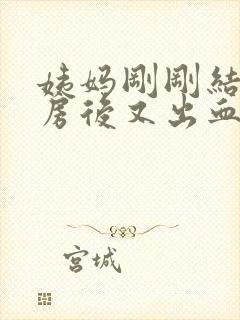 姨妈剛剛結
房後又出血
宮城